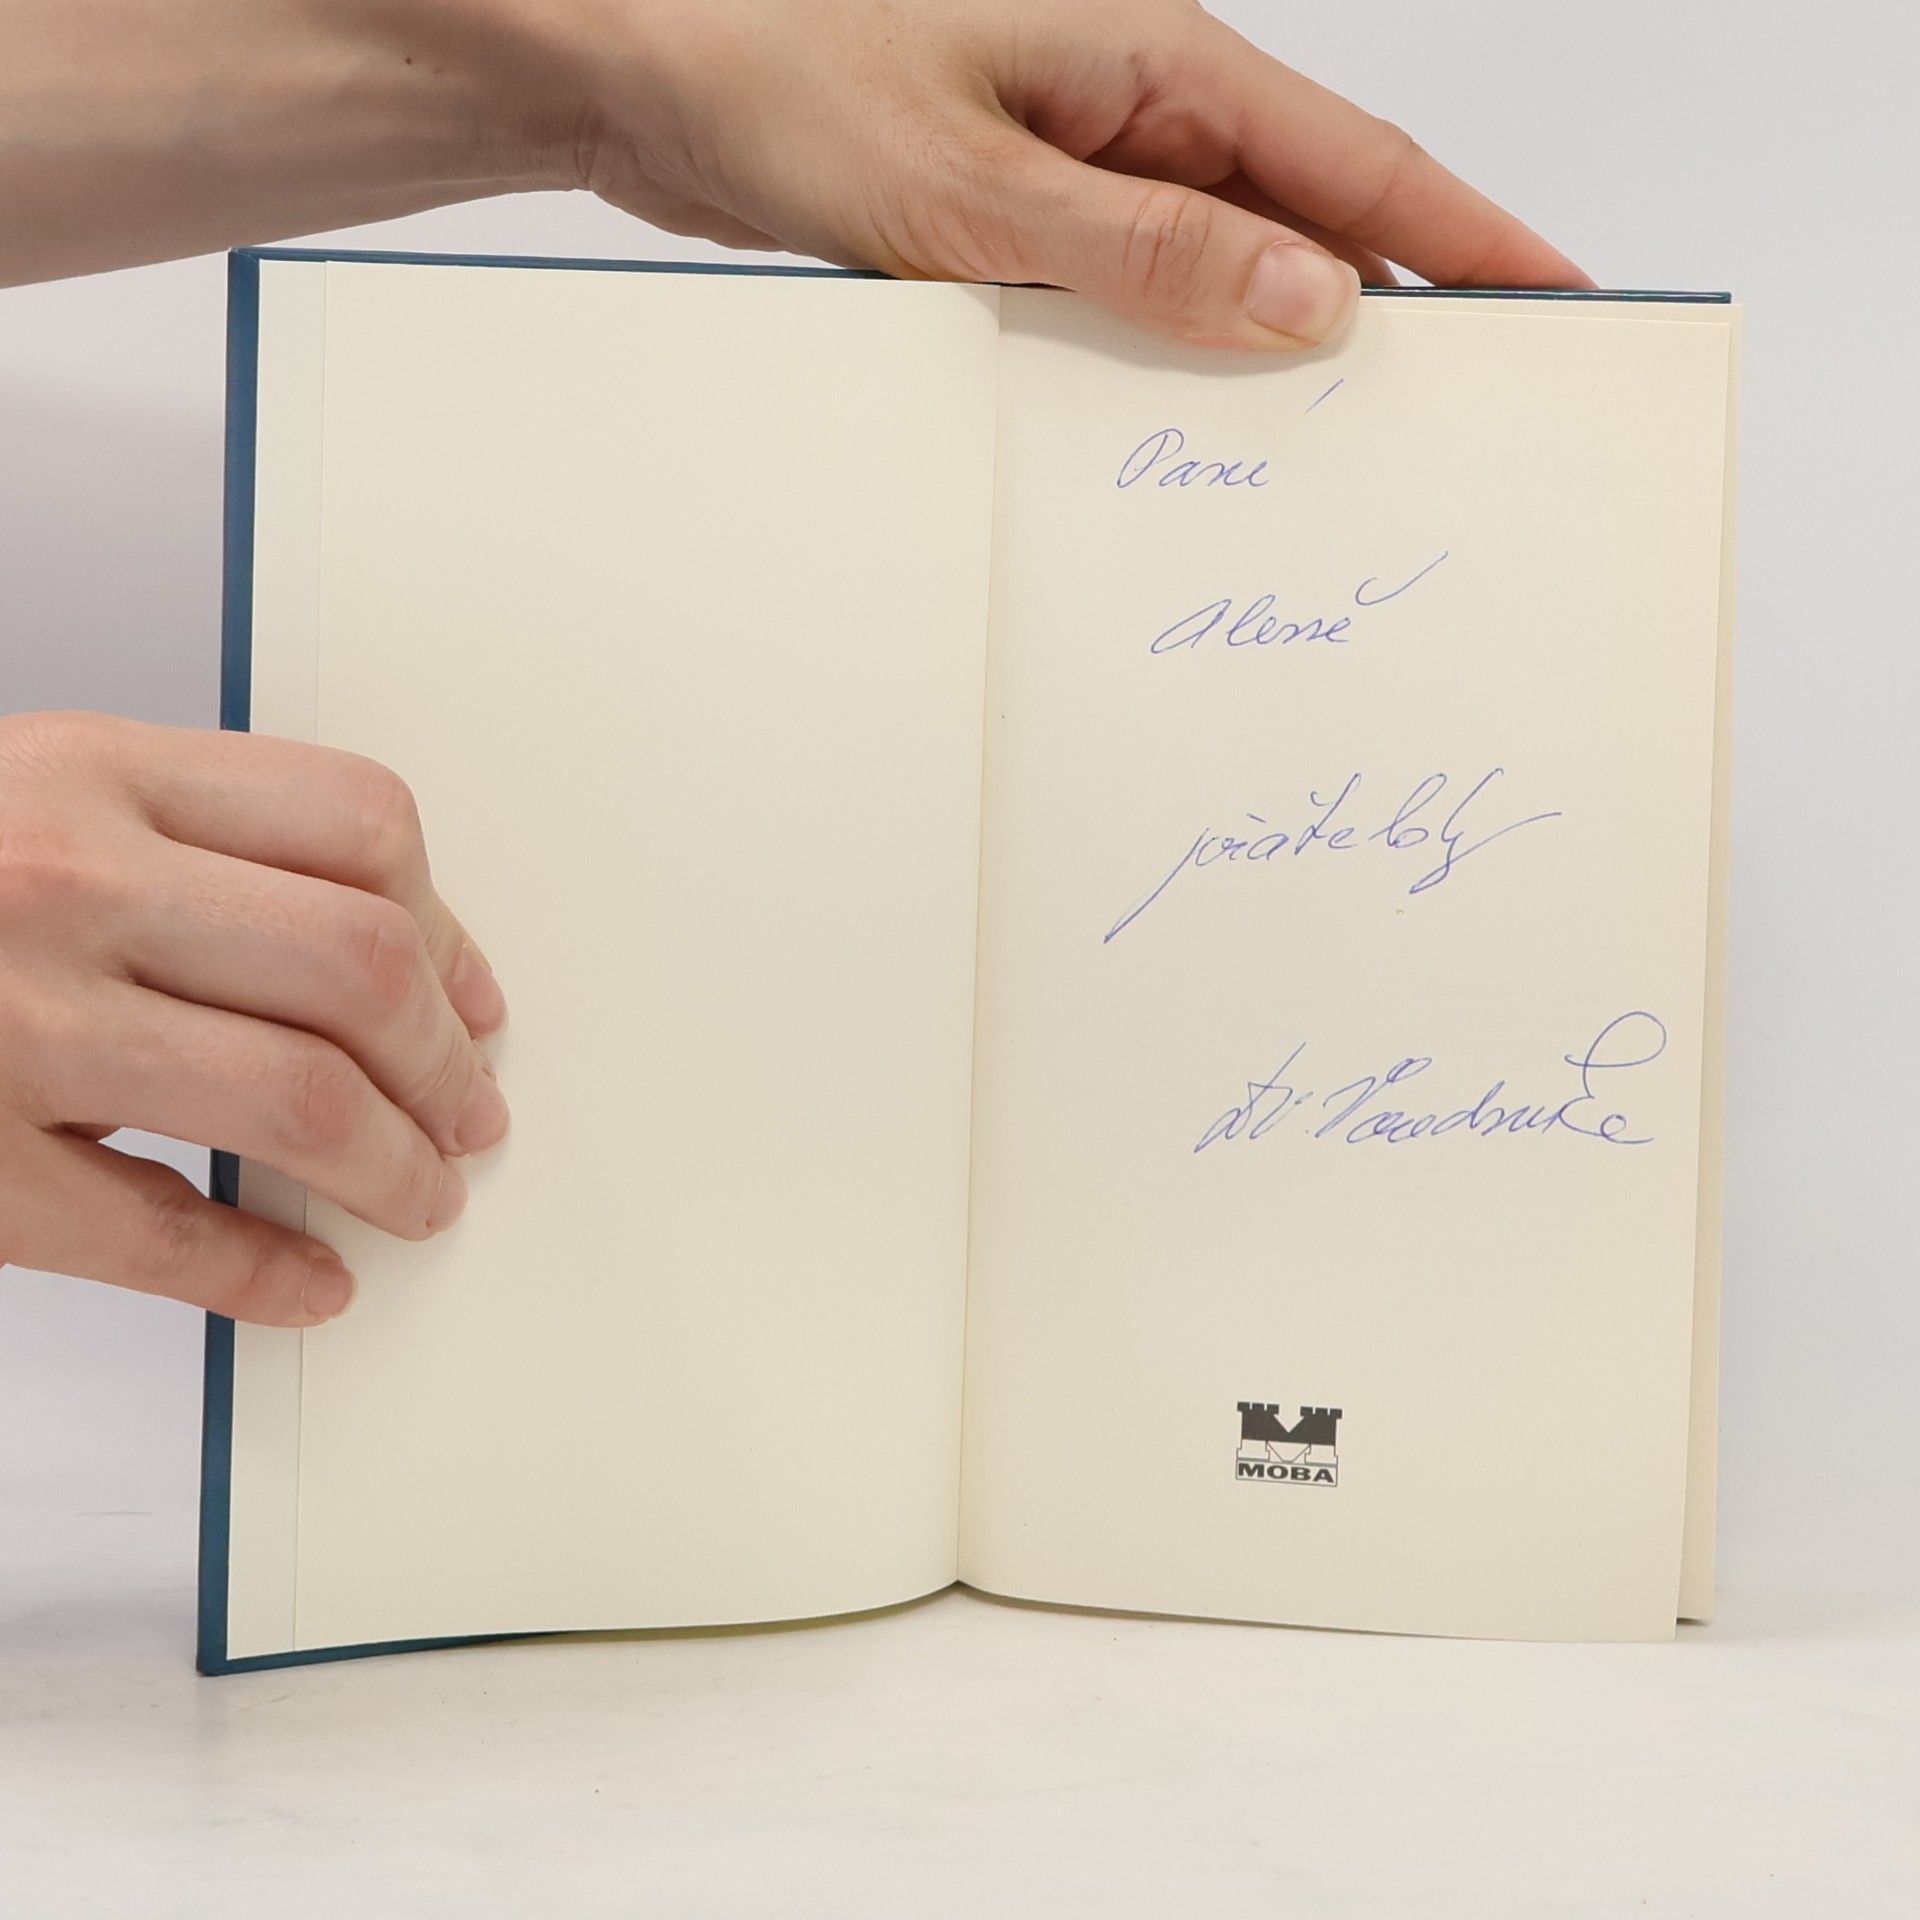 Paní
Aleně
přátelsky
MOBA